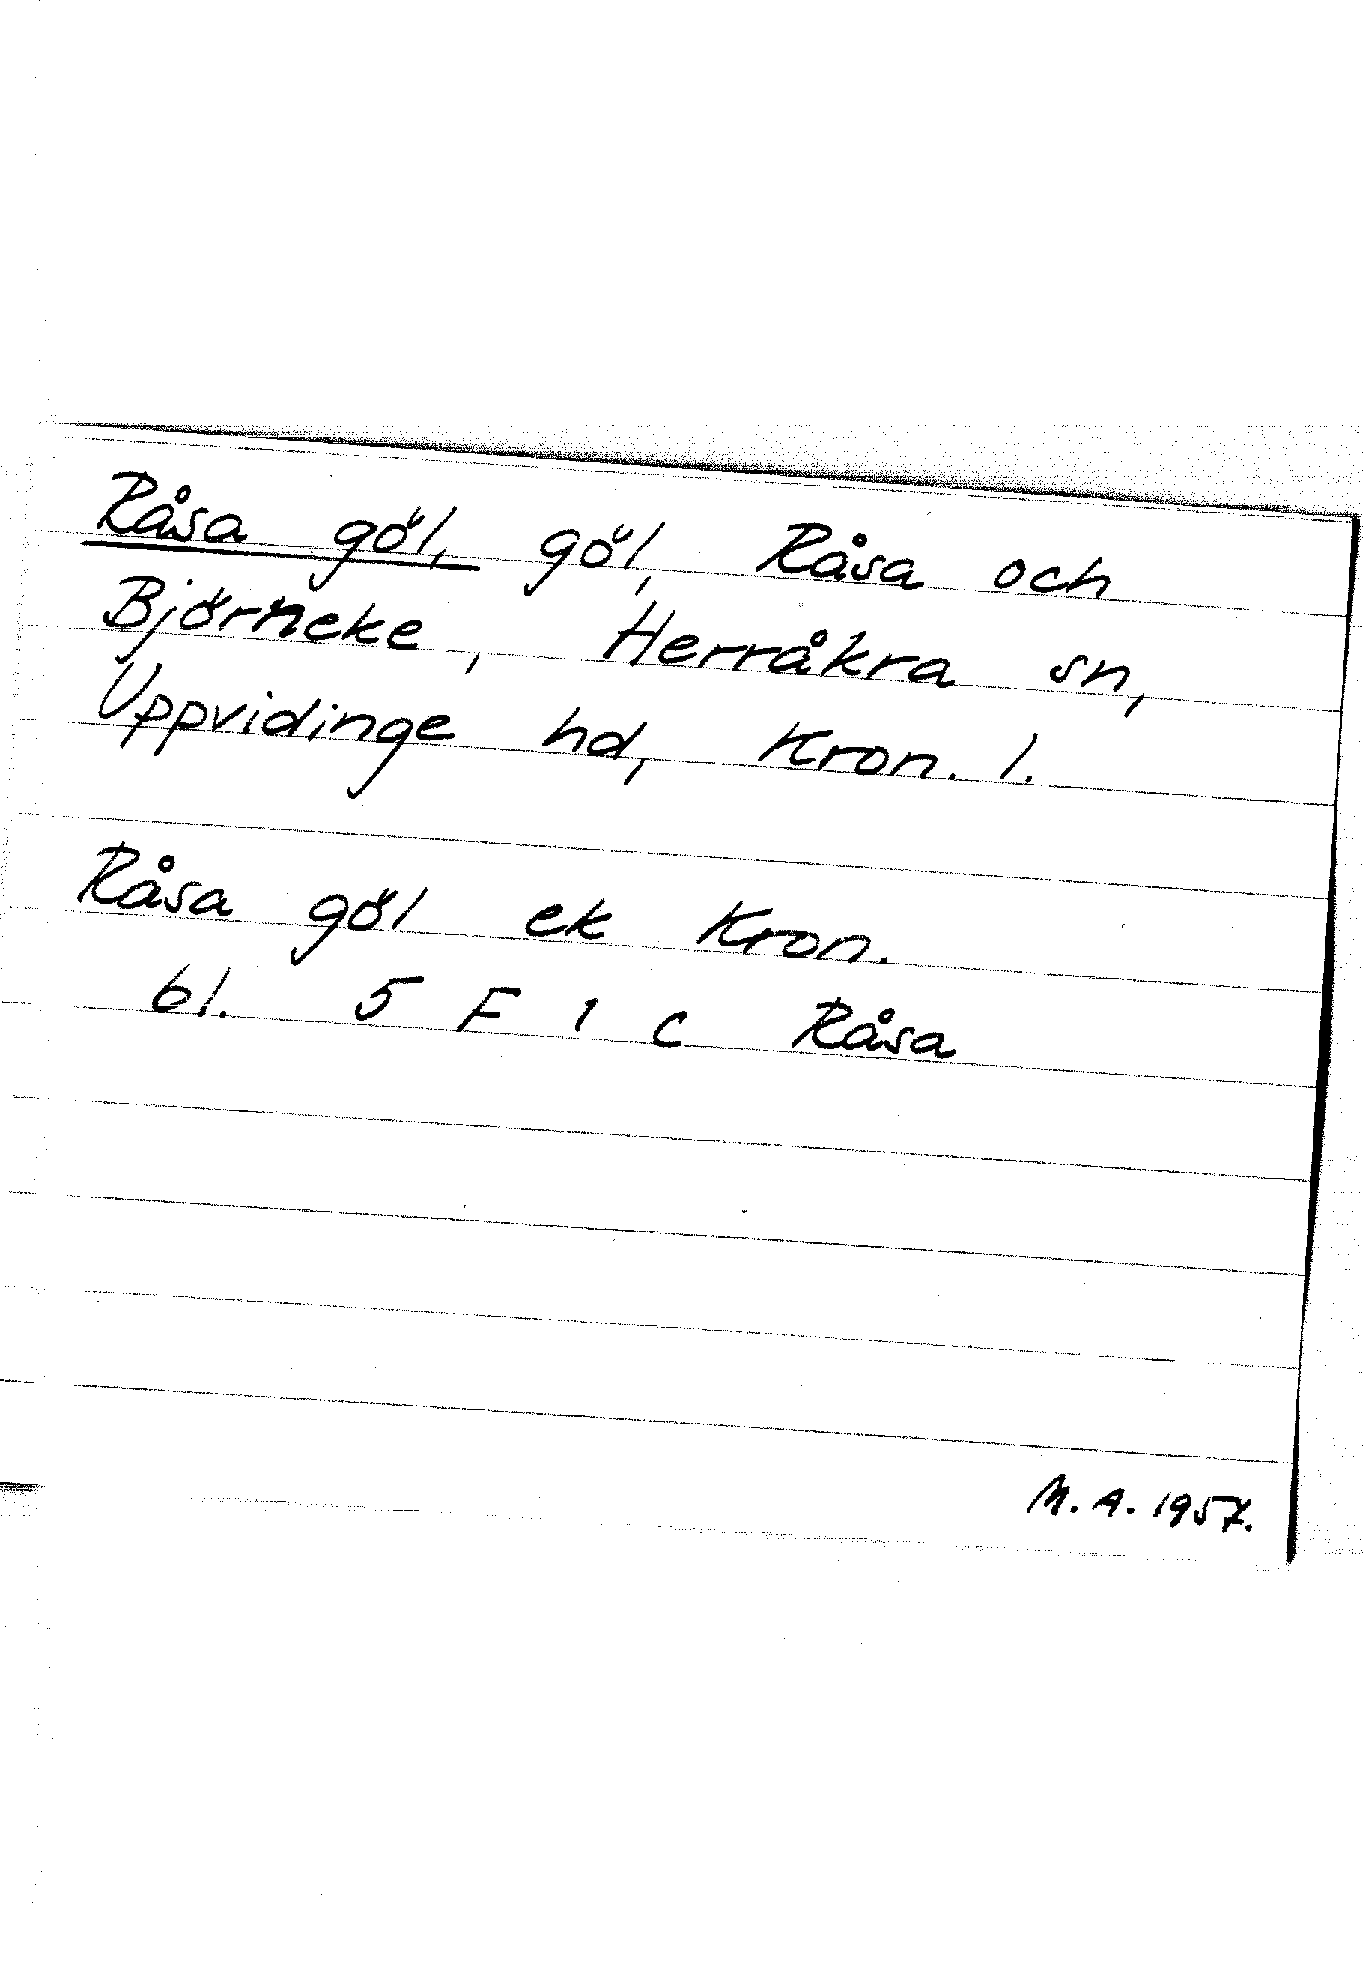 Råsa göl, göl, Råsa och
Björneke, Herråkra sn,
Uppvidinge hd, Kron. l.
Råsa göl ek Kron.
bl. 5 F 1 c Råsa
M. A. 1957.